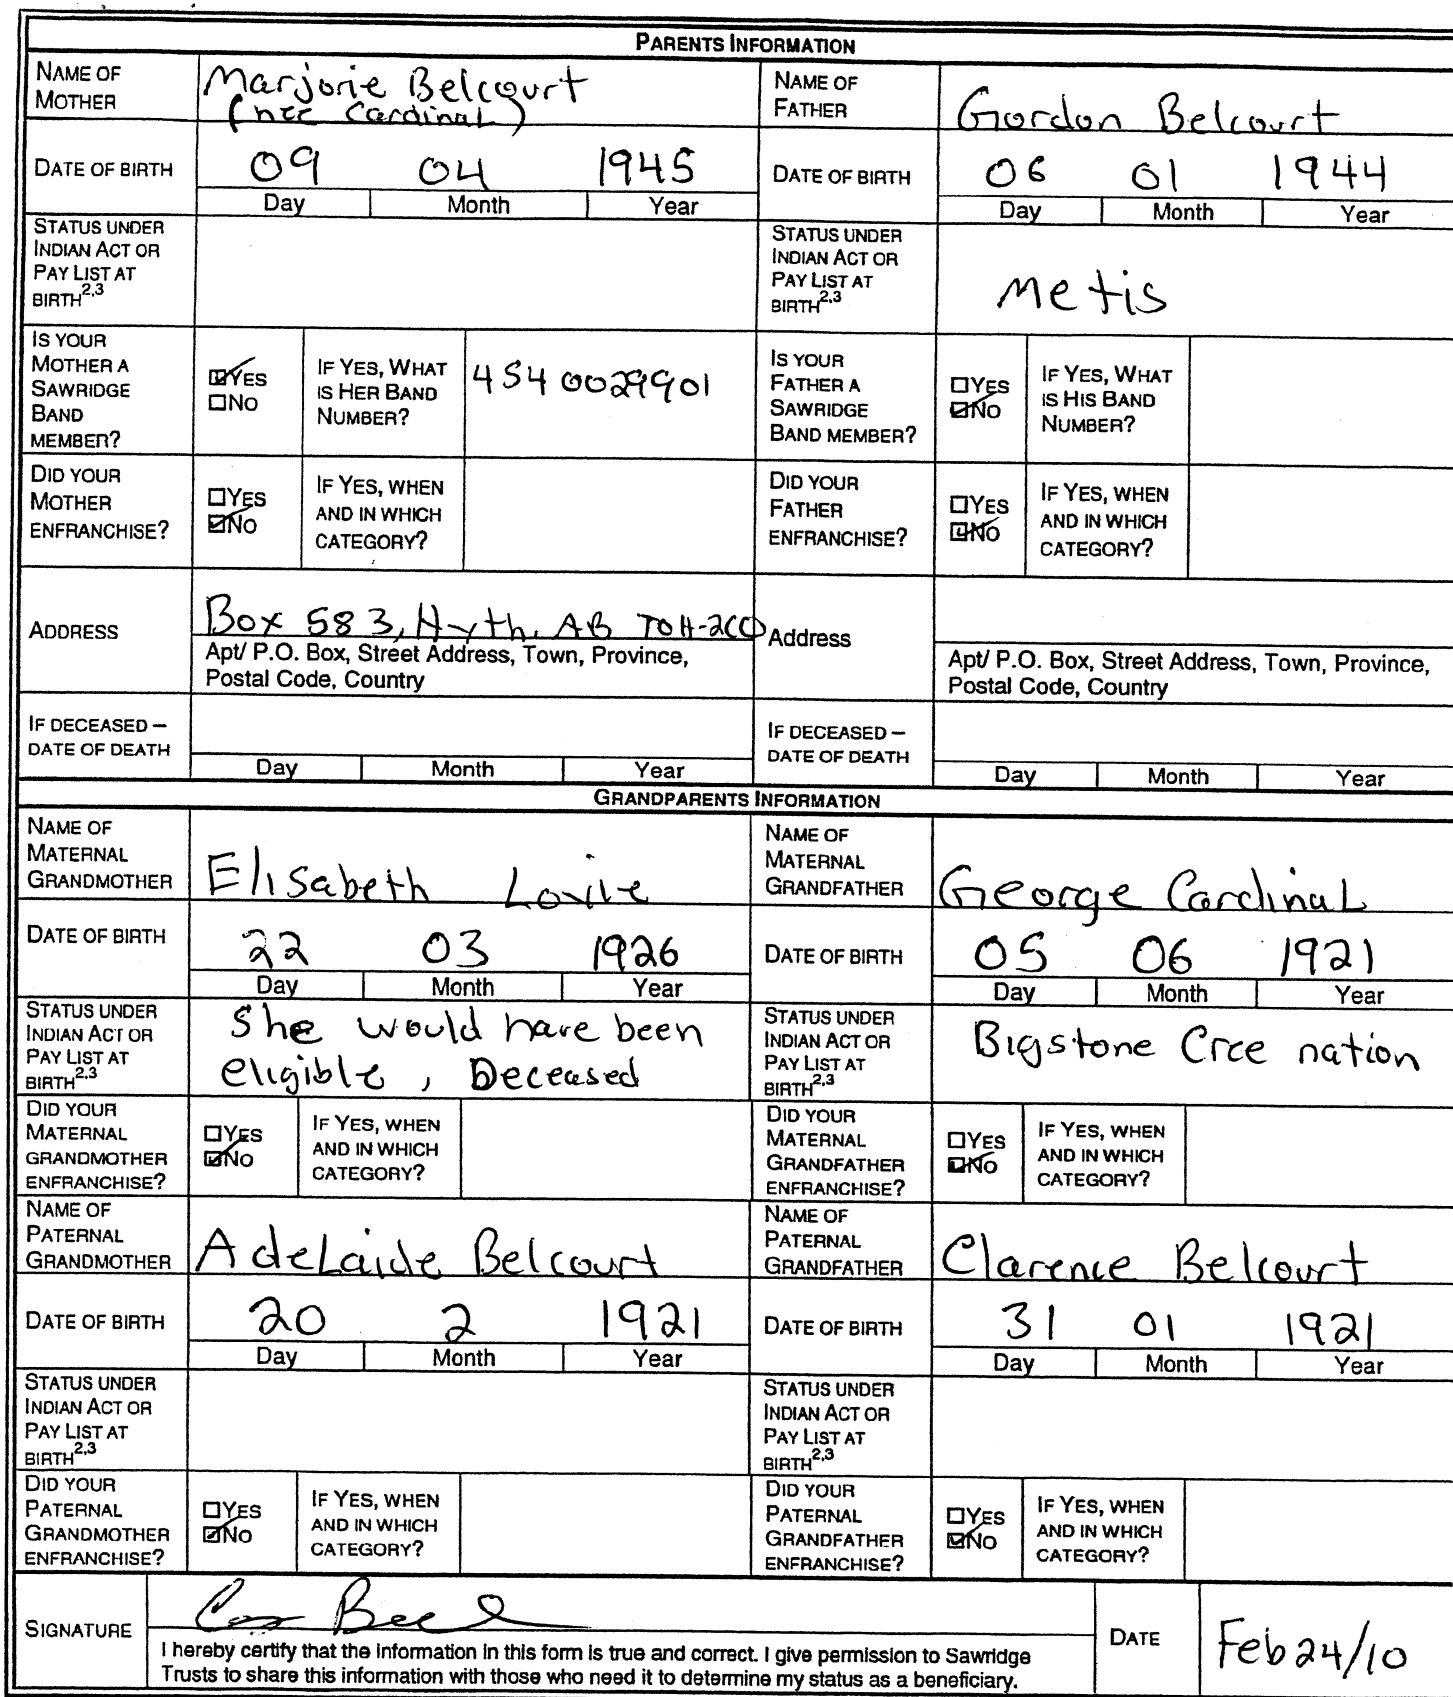 PARENTS INFORMATION
NAME OF MOTHER Marjorie Belcourt (nee Cardinal) NAME OF FATHER Gordon Belcourt
DATE OF BIRTH 09 04 1945 DATE OF BIRTH 06 01 1944
Day Month Year Day Month Year
STATUS UNDER INDIAN ACT OR PAY LIST AT BIRTH2,3 STATUS UNDER INDIAN ACT OR PAY LIST AT BIRTH2,3 Metis
IS YOUR MOTHER A SAWRIDGE BAND MEMBER? ☑YES ☐NO IF YES, WHAT IS HER BAND NUMBER? 4540029901 IS YOUR FATHER A SAWRIDGE BAND MEMBER? ☐YES ☑NO IF YES, WHAT IS HIS BAND NUMBER?
DID YOUR MOTHER ENFRANCHISE? ☐YES ☑NO IF YES, WHEN AND IN WHICH CATEGORY? DID YOUR FATHER ENFRANCHISE? ☐YES ☑NO IF YES, WHEN AND IN WHICH CATEGORY?
ADDRESS Box 583, Hyth, AB T0H-2C0 Address
Apt/ P.O. Box, Street Address, Town, Province, Postal Code, Country Apt/ P.O. Box, Street Address, Town, Province, Postal Code, Country
IF DECEASED – DATE OF DEATH IF DECEASED – DATE OF DEATH
Day Month Year Day Month Year
GRANDPARENTS INFORMATION
NAME OF MATERNAL GRANDMOTHER Elisabeth NAME OF MATERNAL GRANDFATHER George Cardinal
DATE OF BIRTH 22 03 1926 DATE OF BIRTH 05 06 1921
Day Month Year Day Month Year
STATUS UNDER INDIAN ACT OR PAY LIST AT BIRTH2,3 She would have been eligible, Deceased STATUS UNDER INDIAN ACT OR PAY LIST AT BIRTH2,3 Bigstone Cree nation
DID YOUR MATERNAL GRANDMOTHER ENFRANCHISE? ☐YES ☑NO IF YES, WHEN AND IN WHICH CATEGORY? DID YOUR MATERNAL GRANDFATHER ENFRANCHISE? ☐YES ☑NO IF YES, WHEN AND IN WHICH CATEGORY?
NAME OF PATERNAL GRANDMOTHER Adelaide Belcourt NAME OF PATERNAL GRANDFATHER Clarence Belcourt
DATE OF BIRTH 20 2 1921 DATE OF BIRTH 31 01 1921
Day Month Year Day Month Year
STATUS UNDER INDIAN ACT OR PAY LIST AT BIRTH2,3 STATUS UNDER INDIAN ACT OR PAY LIST AT BIRTH2,3
DID YOUR PATERNAL GRANDMOTHER ENFRANCHISE? ☐YES ☑NO IF YES, WHEN AND IN WHICH CATEGORY? DID YOUR PATERNAL GRANDFATHER ENFRANCHISE? ☐YES ☑NO IF YES, WHEN AND IN WHICH CATEGORY?
SIGNATURE DATE Feb 24/10
I hereby certify that the information in this form is true and correct. I give permission to Sawridge
Trusts to share this information with those who need it to determine my status as a beneficiary.